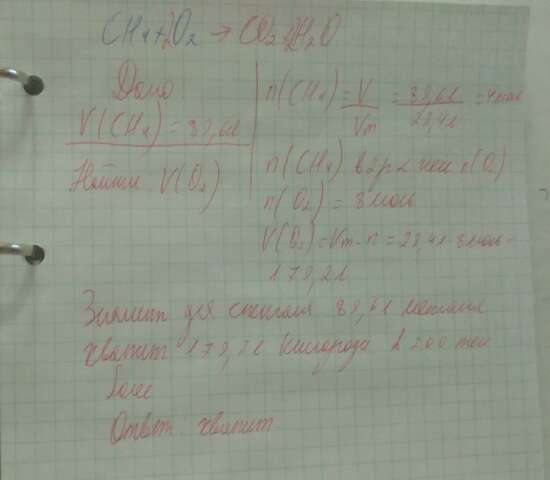 CH4+2O2 → CO2+2H2O
Дано
V(CH4) = 89,6л
Найти V(O2)
n(CH4) = V/Vm = 89,6л/22,4л = 4моль
n(CH4) в 2р < чем n(O2)
n(O2) = 8моль
V(O2) = Vm·n = 22,4л·8моль=
179,2л
Значит для сжигания 89,6л метана
хватит 179,2л кислорода а 200 тем
более
Ответ хватит